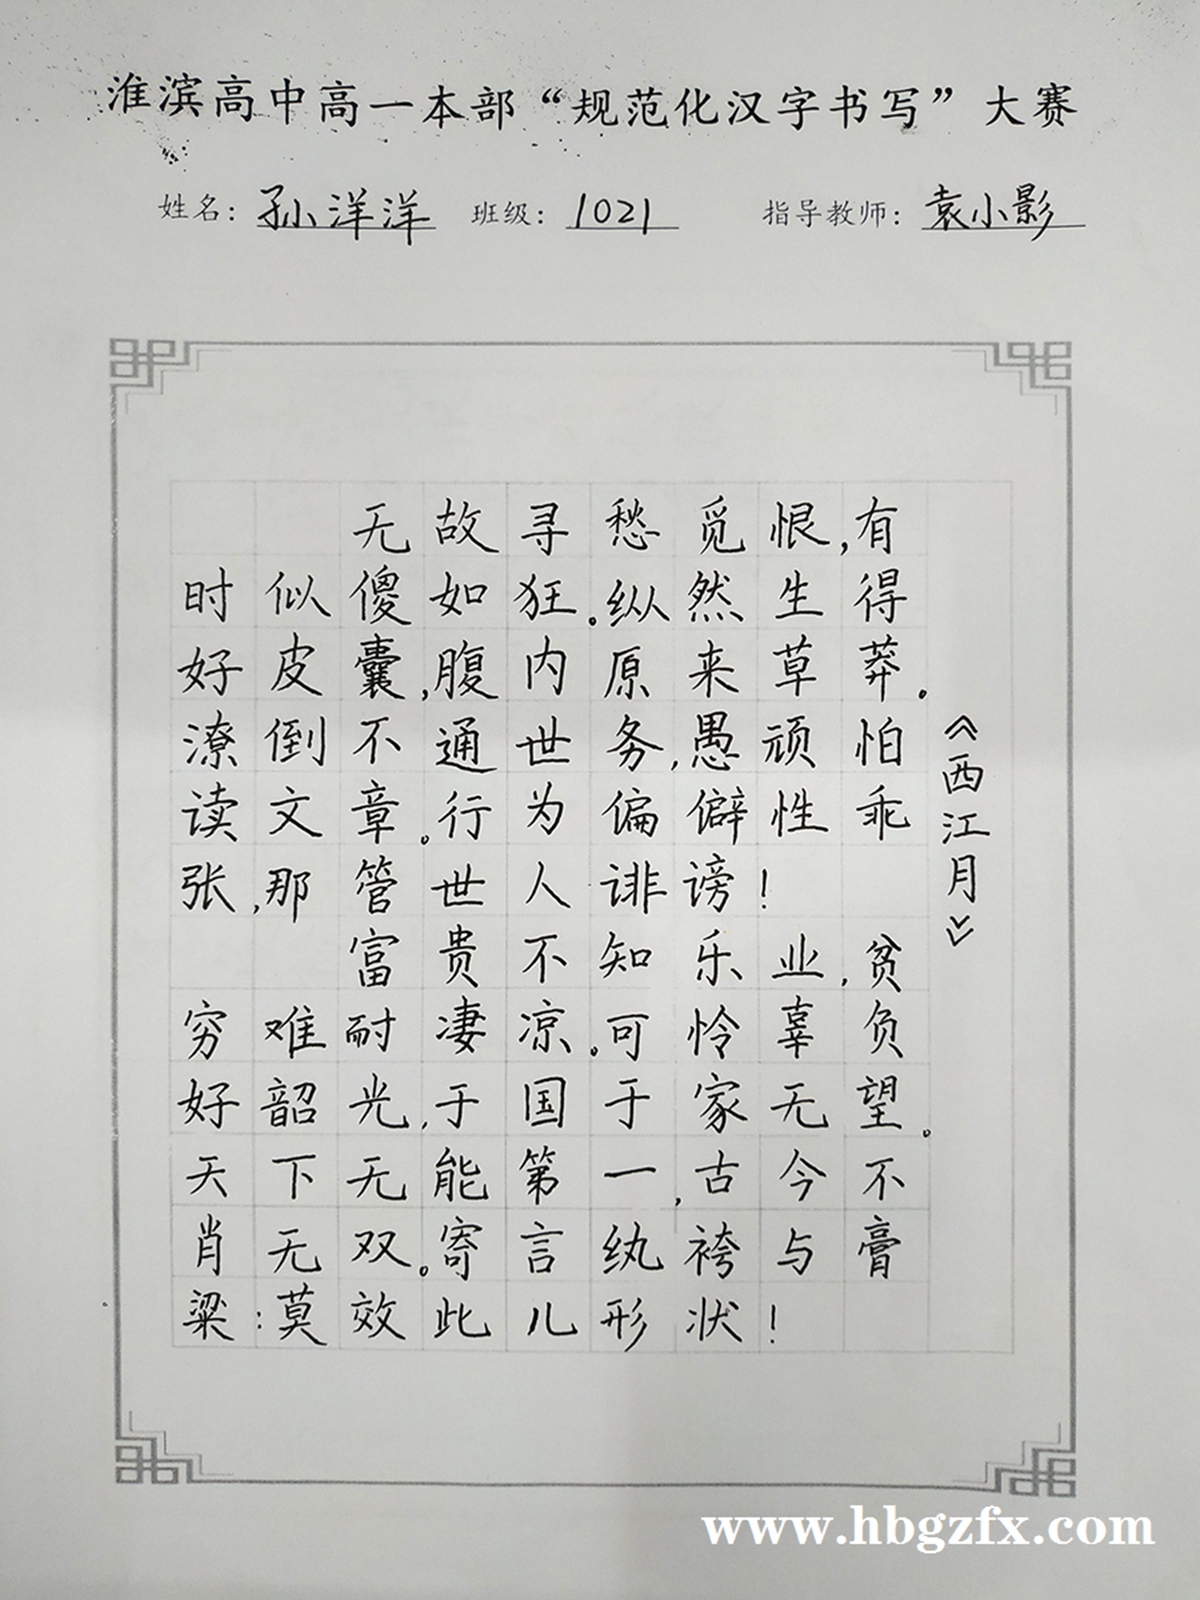 淮滨高中高一本部“规范化汉字书写”大赛
姓名：孙洋洋 班级：1021 指导教师：袁小影
《西江月》
无故寻愁觅恨，有
时似傻如狂。纵然生得
好皮囊，腹内原来草莽。
潦倒不通世务，愚顽怕
读文章。行为偏僻性乖
张，那管世人诽谤！
富贵不知乐业，贫
穷难耐凄凉。可怜辜负
好韶光，于国于家无望。
天下无能第一，古今不
肖无双。寄言纨袴与膏
粱：莫效此儿形状！
www.hbgzfx.com